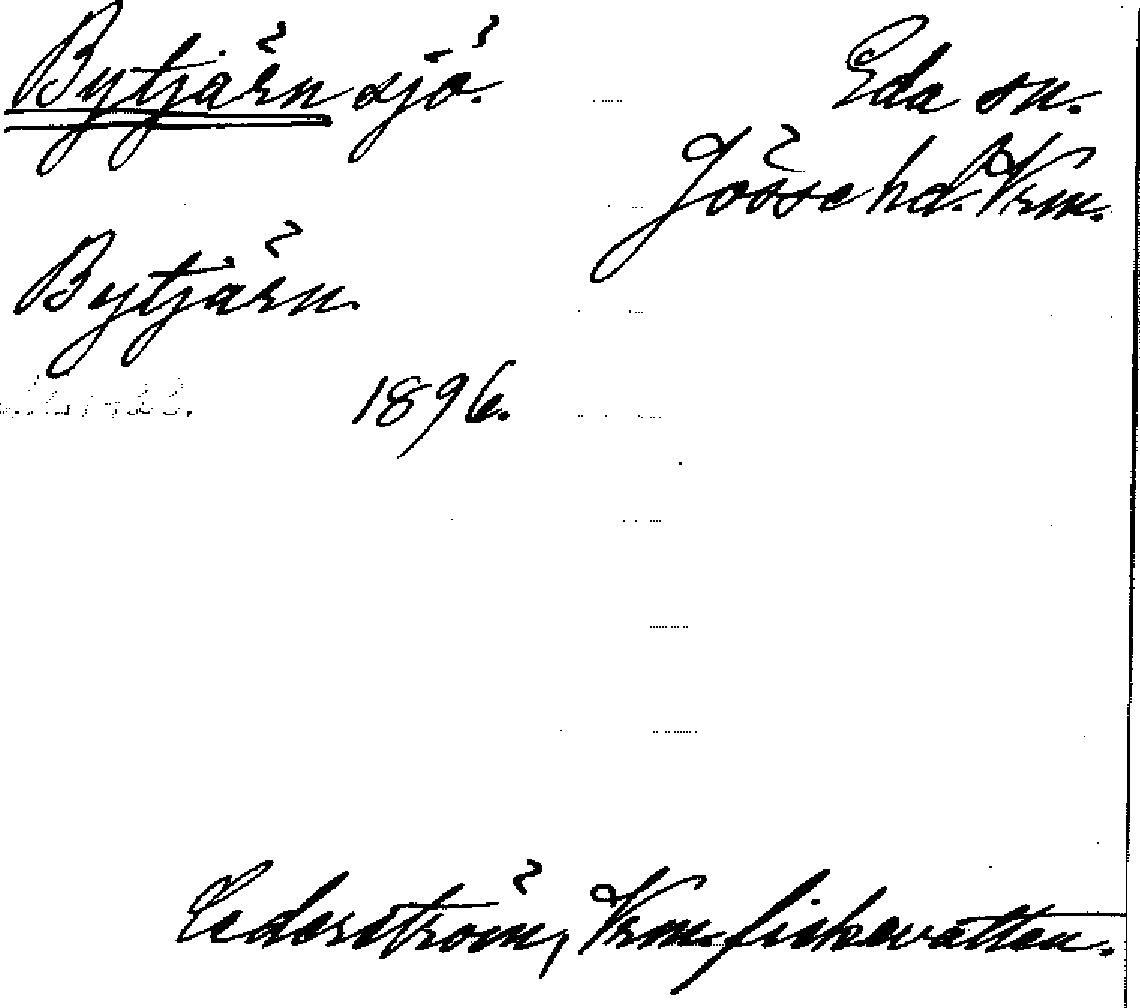 Bytjärn sjö. Eda sn.
Jösse hd. Vrm.
Bytjärn.
1896.
Cederström, Vrm. fiskevatten.